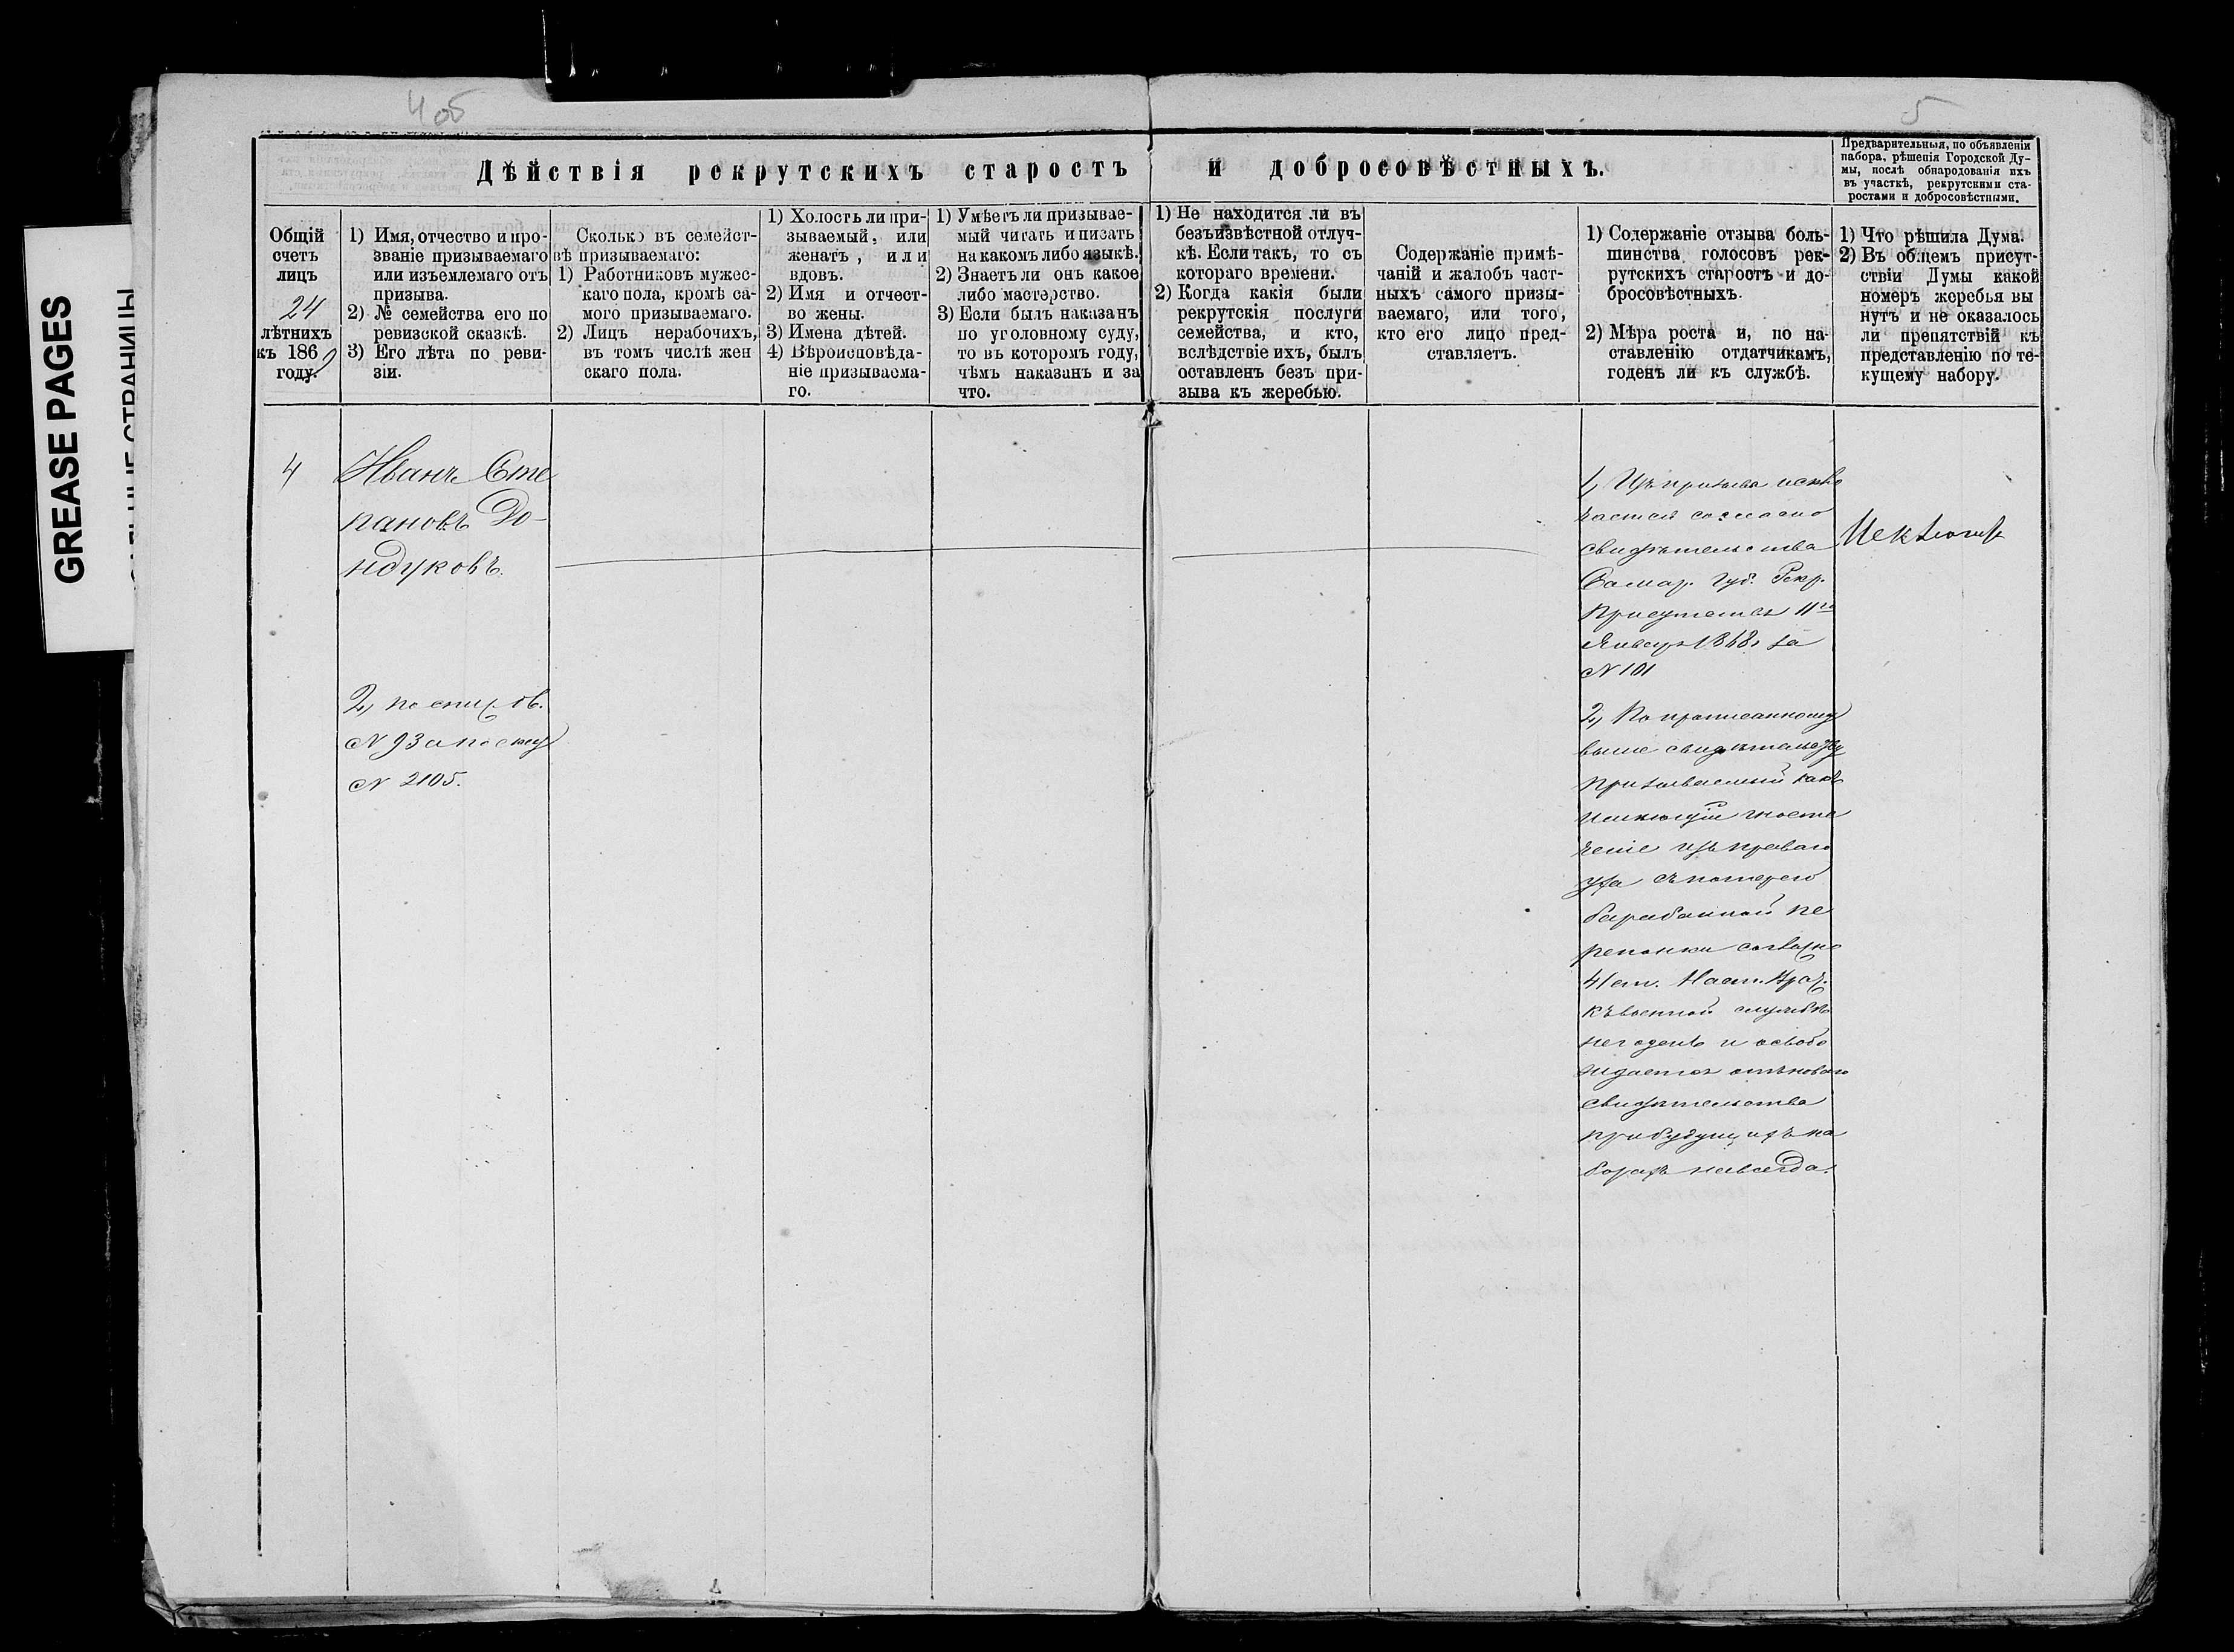 4об
5
GREASE PAGES
Дѣйствія рекрутскихъ старостъ и добросовѣстныхъ.
Предварительныя, по объявленіи
набора, рѣшенія Городской Ду-
мы, послѣ обнародованія ихъ
въ участкѣ, рекрутскими ста-
ростами и добросовѣстными.
Общій
счетъ
лицъ
24
лѣтнихъ
къ 186
году.
1) Имя, отчество и про-
званіе призываемаго
или изъемлемаго отъ
призыва.
2) № семейства его по
ревизской сказкѣ.
3) Его лѣта по реви-
зіи.
Сколько въ семейст-
вѣ призываемаго:
1) Работниковъ мужес-
каго пола, кромѣ са-
мого призываемаго.
2) Лицъ нерабочихъ,
въ томъ числѣ жен
скаго пола.
1) Холостъ ли при-
зываемый, или
женатъ, или
вдовъ.
2) Имя и отчест-
во жены.
3) Имена дѣтей.
4) Вѣроисповѣда-
ніе призываема-
го.
1) Умѣетъ ли призывае-
мый читать и писать
на какомъ либо языкѣ.
2) Знаетъ ли онъ какое
либо мастерство.
3) Если былъ наказанъ
по уголовному суду,
то въ которомъ году,
чѣмъ наказанъ и за
что.
1) Не находится ли въ
безъизвѣстной отлуч-
кѣ. Если такъ, то съ
котораго времени.
2) Когда какія были
рекрутскія послуги
семейства, и кто,
вслѣдствіе ихъ, былъ
оставленъ безъ при-
зыва къ жеребью.
Содержаніе примѣ-
чаній и жалобъ част-
ныхъ самого призы-
ваемаго, или того,
кто его лицо пред-
ставляетъ.
1) Содержаніе отзыва боль-
шинства голосовъ рек-
рутскихъ старостъ и до-
бросовѣстныхъ.
2) Мѣра роста и, по на-
ставленію отдатчикамъ,
годенъ ли къ службѣ.
1) Что рѣшила Дума.
2) Въ общемъ присут-
ствіи Думы какой
номеръ жеребья вы
нутъ и не оказалось
ли препятствій къ
представленію по те-
кущему набору.
4
Иванъ Сте
пановъ До-
ндуковъ.
2, по
N 93 а по
N 2105.
1, Изъ призыва исклю
чается согласно
свидѣтельства
Самар. Губ. Рекр.
Присутствія 11го
Января 1868 г. за
N 101
2, По прописанному
выше свидѣтельству
призываемый какъ
имѣющій гноете
ченіе изъ праваго
уха съ потерею
барабанной пе
репонки согласно
41 ст. Наст. Врач.
къ военной службѣ
негоденъ и освобо
ждается отъ новаго
свидѣтельства
при будущихъ на
борахъ навсегда.